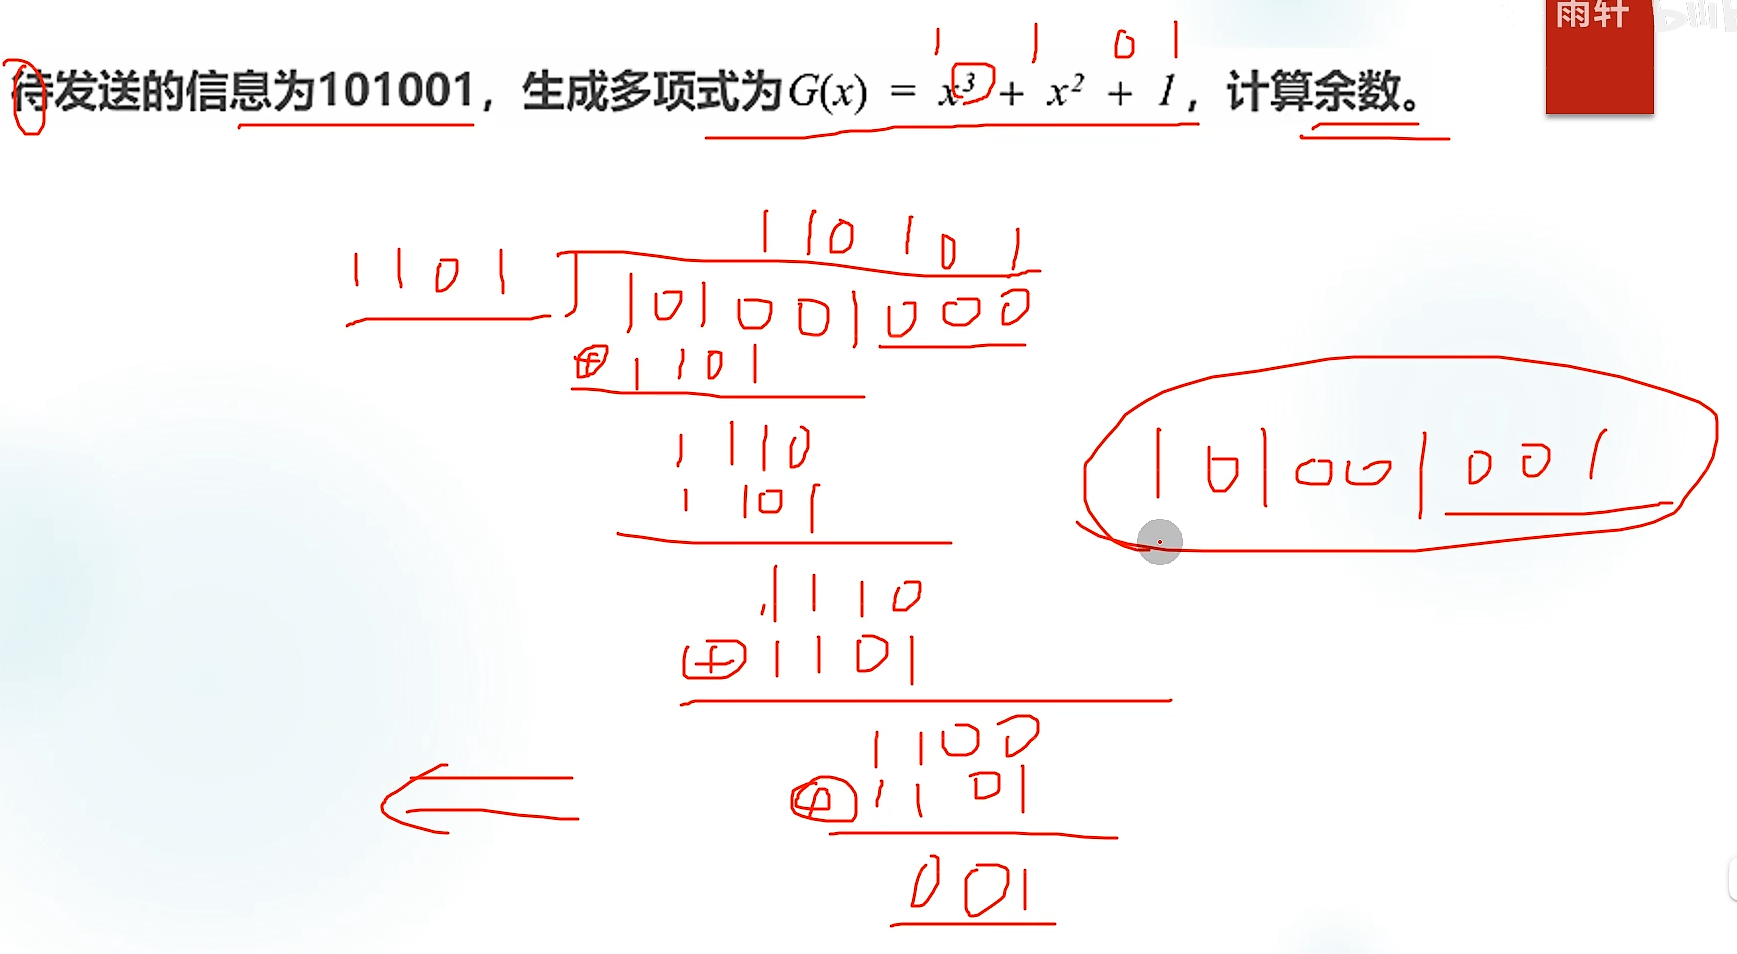 雨轩
1 1 0 1
待发送的信息为101001，生成多项式为G(x) = x³ + x² + 1，计算余数。
110101
1101
101001000
⊕1101
1110
1101
1110
⊕1101
1100
⊕1101
001
101001001